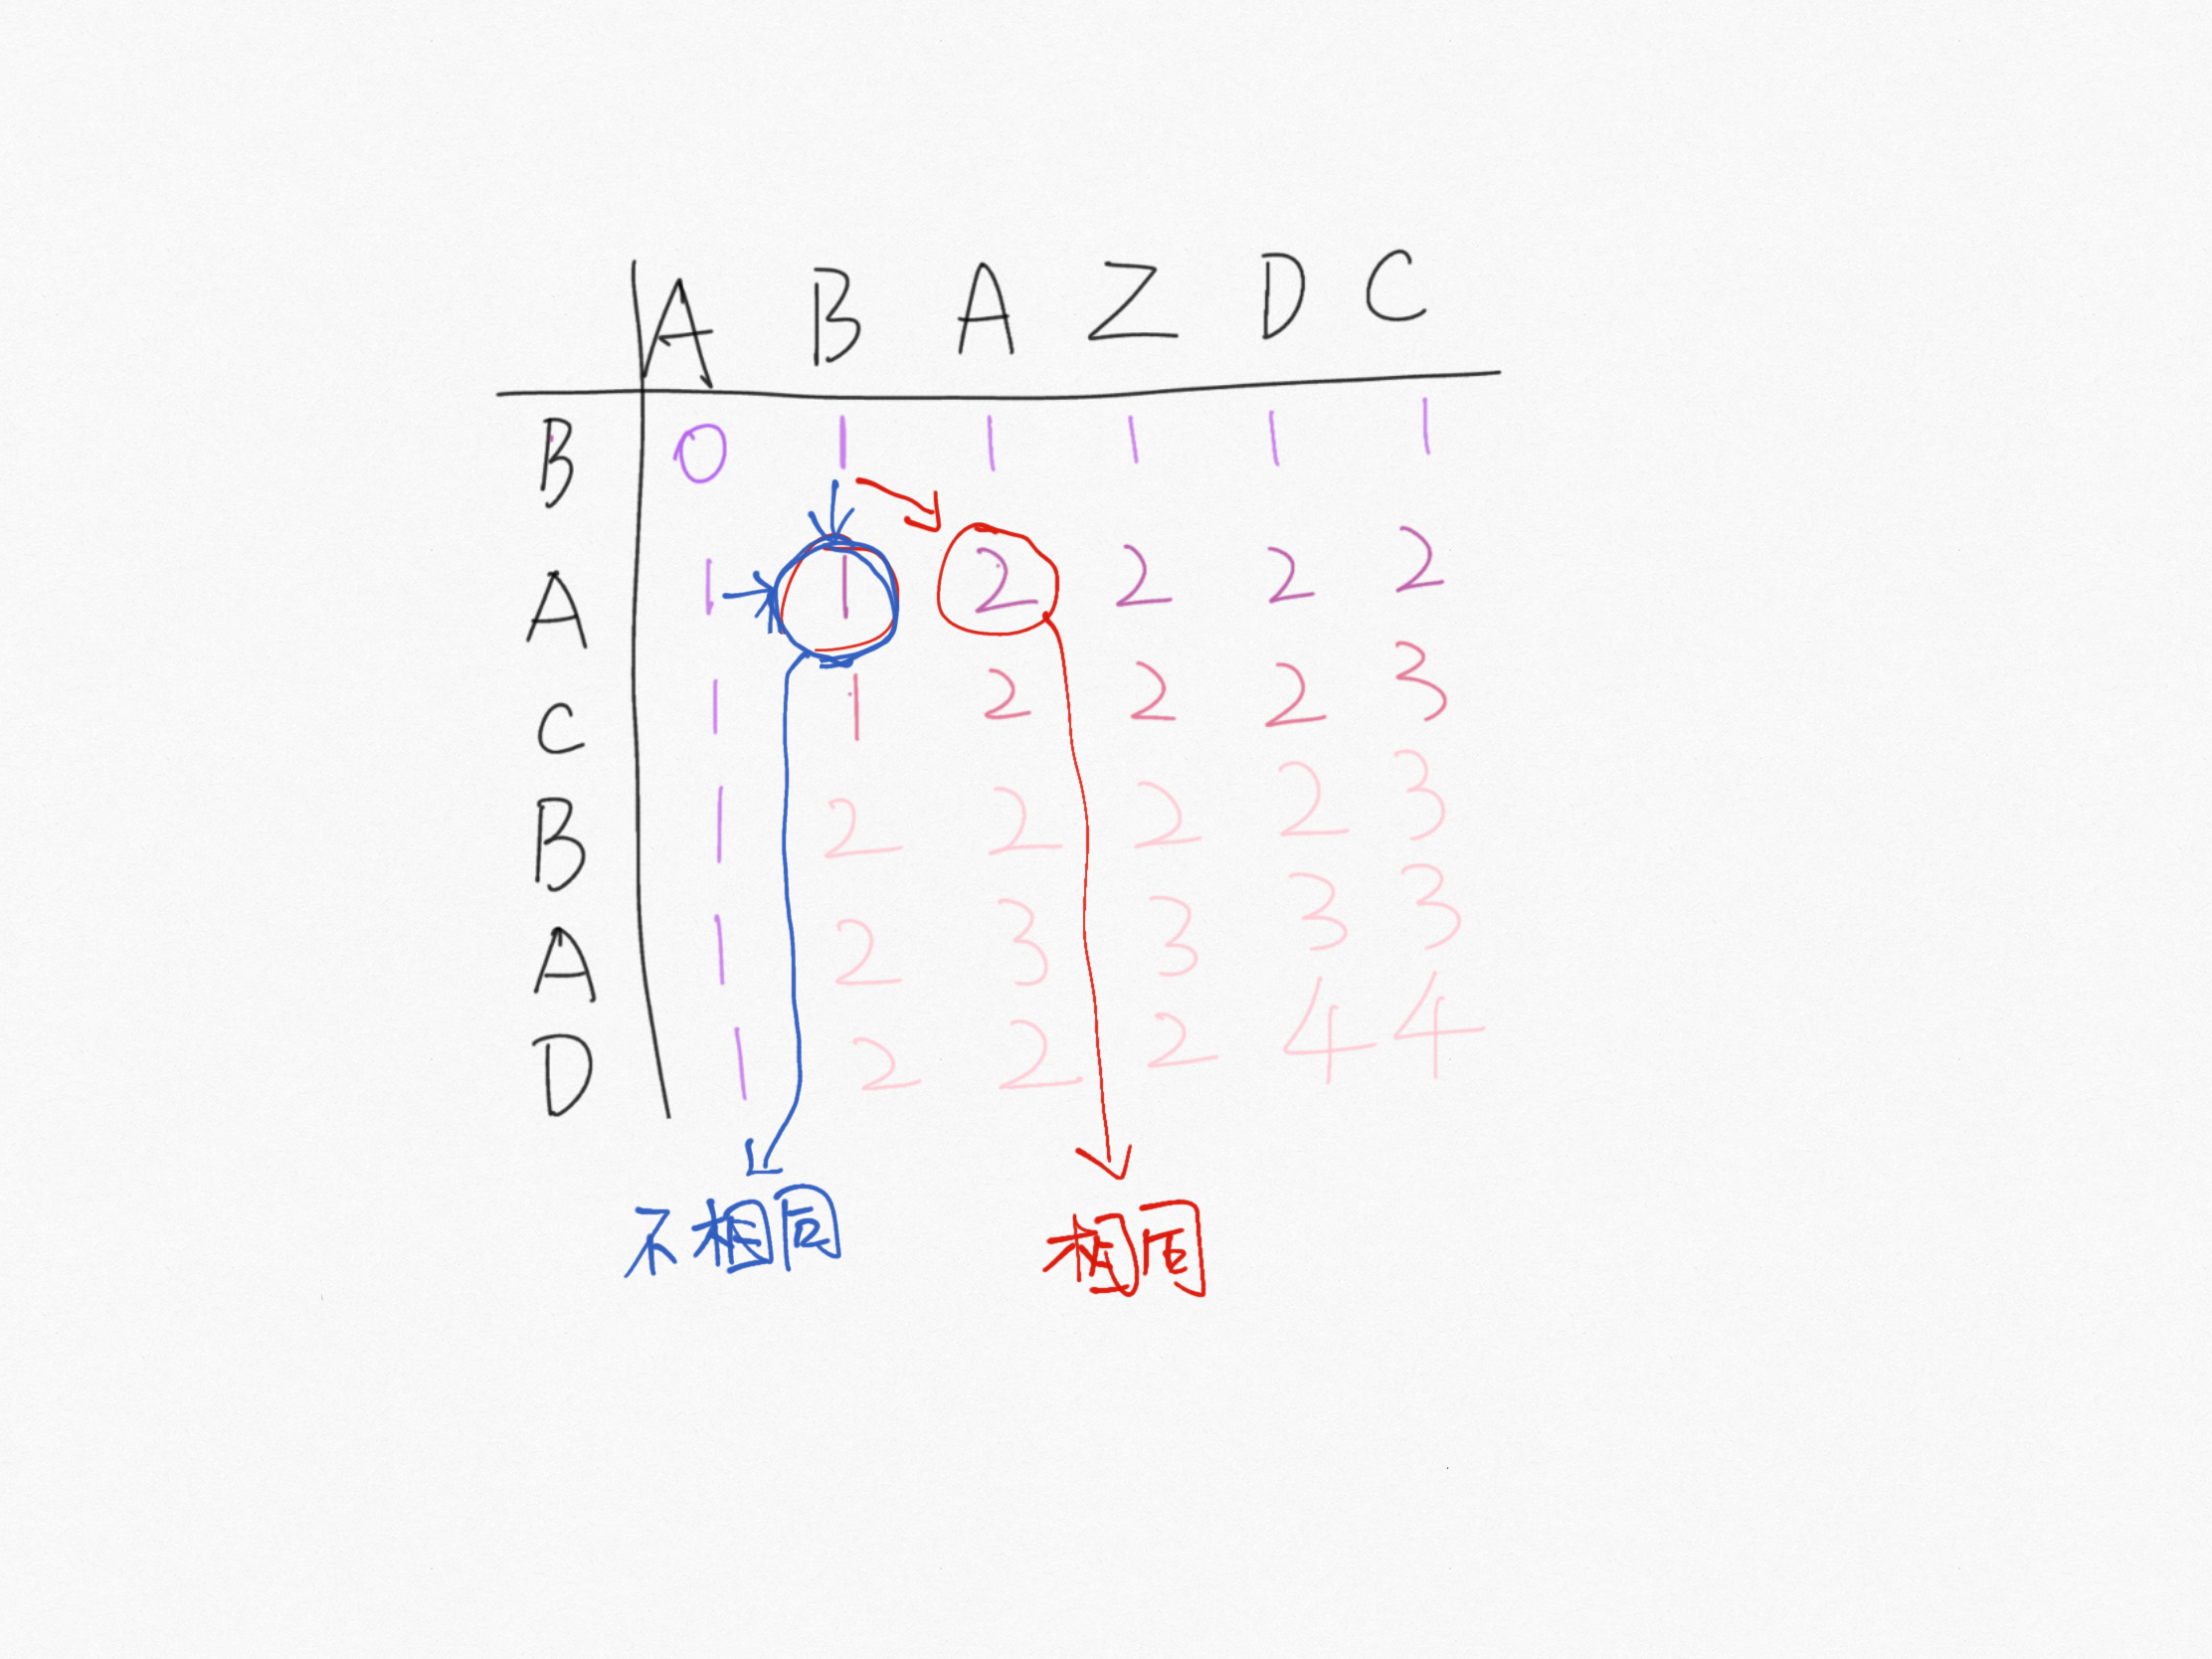 A B A Z D C
B 0 1 1 1 1 1
A 1 1 2 2 2 2
C 1 1 2 2 2 3
B 1 2 2 2 2 3
A 1 2 3 3 3 3
D 1 2 2 2 4 4
不相同 相同